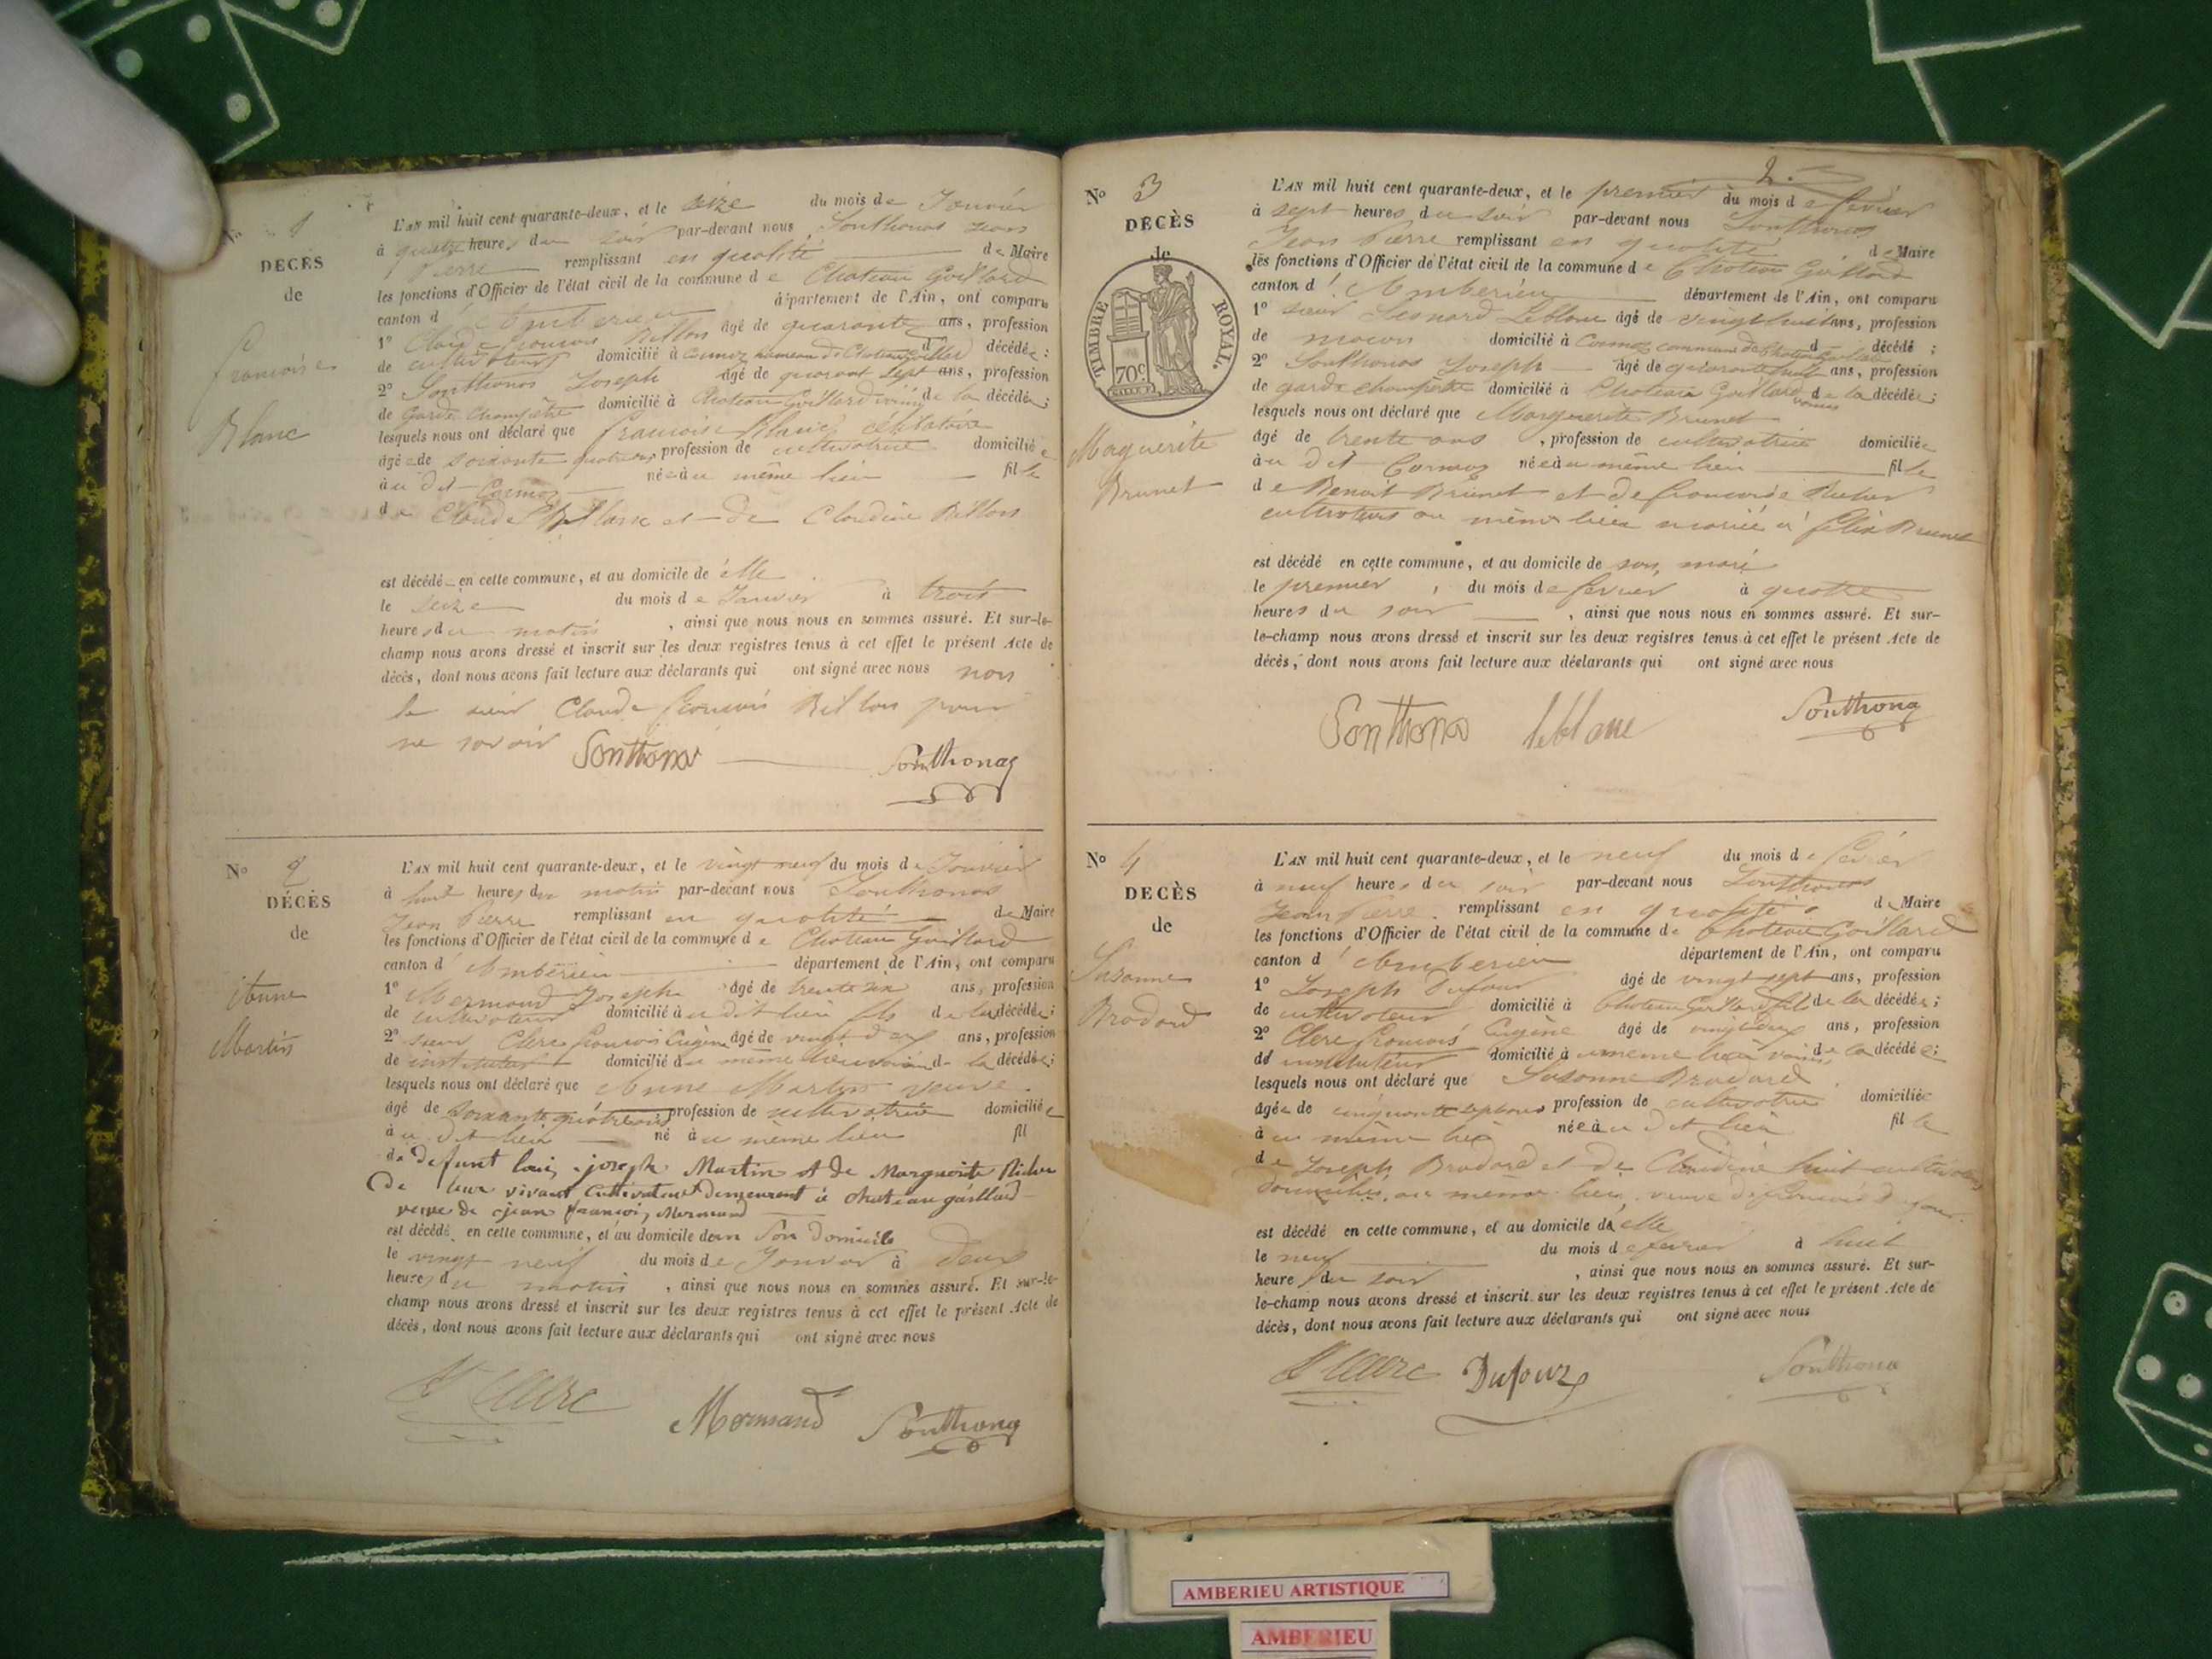 N° 1
DECÈS
de
françoise
Blanc
L'AN mil huit cent quarante-deux, et le seize du mois de Janvier
à quatre heures du soir par-devant nous Sonthonas Jean
Pierre remplissant en qualité de Maire
les fonctions d'Officier de l'état civil de la commune de Chateau Gaillard
canton d'Amberieu département de l'Ain, ont comparu
1° Claude françois Billon âgé de quarante ans, profession
de cultivateur domicilié à Cormoz hameau de Chateau Gaillard d décédée ;
2° Sonthonas Joseph âgé de quarant sept ans, profession
de Garde Champêtre domicilié à Chateau Gaillard voisin de la décédée ;
lesquels nous ont déclaré que francoise Blanc célibataire
âgée de soixante quatre ans profession de cultivatrice domiciliée
au dit Cormoz née au même lieu fille
de Claude Blanc et de Claudine Billon
est décédé en cette commune, et au domicile de elle
le seize du mois de Janvier à trois
heures du matin, ainsi que nous nous en sommes assuré. Et sur-le-
champ nous avons dressé et inscrit sur les deux registres tenus à cet effet le présent Acte de
décès, dont nous avons fait lecture aux déclarants qui ont signé avec nous non
le sieur Claude francois Billon pour
ne savoir Sonthonas Sonthonas
N° 2
DÉCÈS
de
Anne
Martin
L'AN mil huit cent quarante-deux, et le vingt neuf du mois de Janvier
à huit heures du matin par-devant nous Sonthonas
Jean Pierre remplissant en qualité de Maire
les fonctions d'Officier de l'état civil de la commune de Chateau Gaillard
canton d'Amberieu département de l'Ain, ont comparu
1° Mermand Joseph âgé de trente six ans, profession
de cultivateur domicilié au dit lieu fils de la décédée ;
2° sieur Clerc francois Eugène âgé de vingt deux ans, profession
de instituteur domicilié au même lieu voisin de la décédée ;
lesquels nous ont déclaré que Anne Martin veuve
âgé de soixante quatre ans profession de cultivatrice domiciliée
au dit lieu né au même lieu fil
de defunt loui joseph Martin et de Marguerite
De leur vivant Cultivateur Demeurant à chateau gaillard
veuve de jean françoi Mermand
est décédé en cette commune, et au domicile dans Son Domicile
le vingt neuf du mois de Janvier à deux
heures du matin, ainsi que nous nous en sommes assuré. Et sur-le-
champ nous avons dressé et inscrit sur les deux registres tenus à cet effet le présent Acte de
décès, dont nous avons fait lecture aux déclarants qui ont signé avec nous
Clerc Mermand Sonthonas
2
N° 3
DECÈS
de
TIMBRE ROYAL.
70c
Maguerite
Brunet
L'AN mil huit cent quarante-deux, et le premier du mois de fevrier
à sept heures du soir par-devant nous Sonthonas
Jean Pierre remplissant en qualité de Maire
les fonctions d'Officier de l'état civil de la commune de Chateau Gaillard
canton d'Amberieu département de l'Ain, ont comparu
1° sieur Leonard Leblanc âgé de vingt huit ans, profession
de macon domicilié à Cormoz commune de Chateau Gaillard d décédé ;
2° Sonthonas Joseph âgé de quarante ans, profession
de garde champetre domicilié à Chateau Gaillard voisin de la décédée ;
lesquels nous ont déclaré que Marguerite Brunet
âgé de trente ans, profession de cultivatrice domiciliée
au dit Cormoz née au même lieu fille
de Benoit Brunet et de francoise
cultivateurs au même lieu mariée à félix Brunet
est décédé en cette commune, et au domicile de son mari
le premier, du mois de fevrier à quatre
heures du soir, ainsi que nous nous en sommes assuré. Et sur-
le-champ nous avons dressé et inscrit sur les deux registres tenus à cet effet le présent Acte de
décès, dont nous avons fait lecture aux déclarants qui ont signé avec nous
Sonthonas leblanc Sonthonas
N° 4
DECÈS
de
Susanne
Brodard
L'AN mil huit cent quarante-deux, et le neuf du mois de fevrier
à neuf heures du soir par-devant nous Sonthonas
Jean Pierre remplissant en qualité de Maire
les fonctions d'Officier de l'état civil de la commune de Chateau Gaillard
canton d'Amberieu département de l'Ain, ont comparu
1° Joseph Dufour âgé de vingt sept ans, profession
de cultivateur domicilié à Chateau Gaillard fils de la décédée ;
2° Clerc francois Eugène âgé de vingt deux ans, profession
de instituteur domicilié au meme lieu voisin de la décédée ;
lesquels nous ont déclaré que Susanne Brodard
âgée de cinquante sept ans profession de cultivatrice domiciliée
au même lieu née au dit lieu fille
de Joseph Brodard et de Claudine cultivateurs
domiciliés au même lieu, veuve de francois Dufour
est décédé en cette commune, et au domicile de elle
le neuf du mois de fevrier à huit
heure du soir, ainsi que nous nous en sommes assuré. Et sur-
le-champ nous avons dressé et inscrit sur les deux registres tenus à cet effet le présent Acte de
décès, dont nous avons fait lecture aux déclarants qui ont signé avec nous
Clerc Dufour Sonthonas
AMBERIEU ARTISTIQUE
AMBERIEU